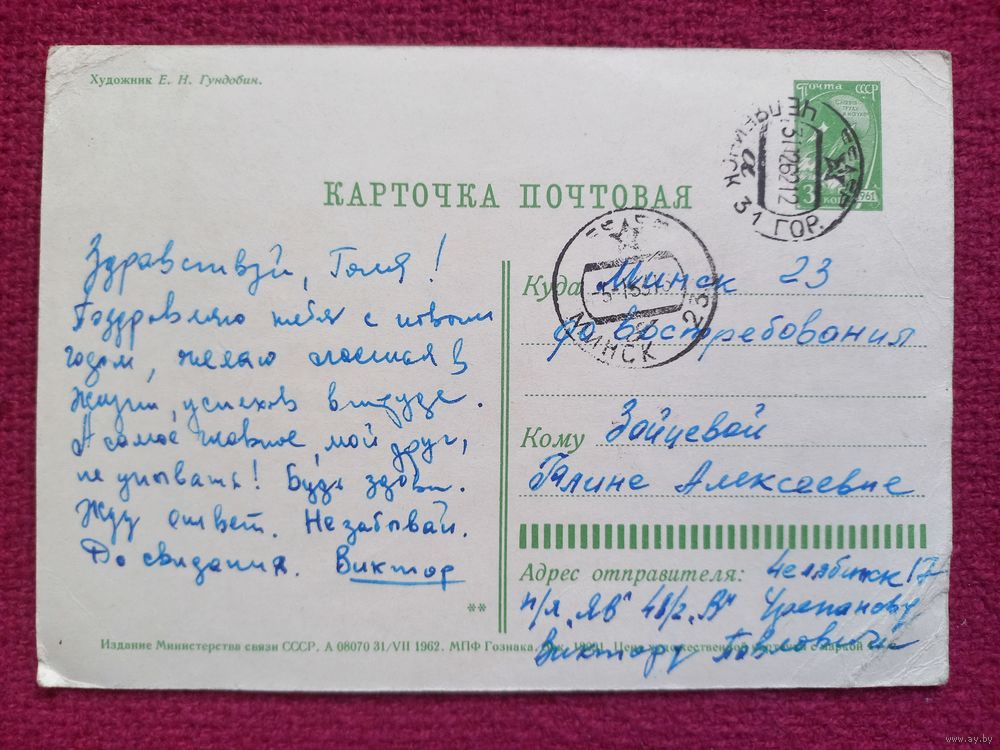 Художник Е. Н. Гундобин.
ПОЧТА СССР
КАРТОЧКА ПОЧТОВАЯ
ЧЕЛЯБИНСК
31 ГОР.
МИНСК 23
Здравствуй, Галя!
Поздравляю тебя с новым
годом, желаю счастья в
жизни, успехов в труде.
А самое главное, мой друг,
не унывать! Будь здорова.
Жду ответ. Не забывай.
До свидания. Виктор
Куда Минск 23
до востребования
Кому Зайцевой
Галине Алексеевне
Адрес отправителя: Челябинск 17
п/я „ЯВ“ 48/2 „В“
Виктору Павловичу
**
Издание Министерства связи СССР. А 08070 31/VII 1962. МПФ Гознака.
www.ay.by